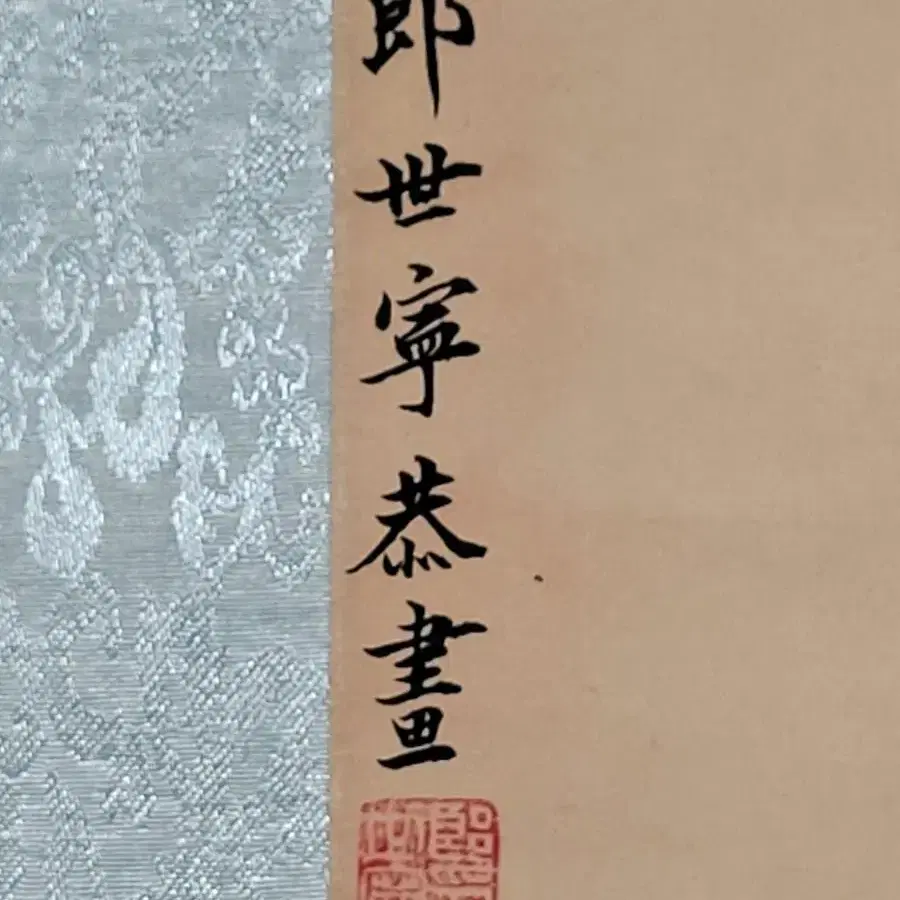 郎世寧恭畫